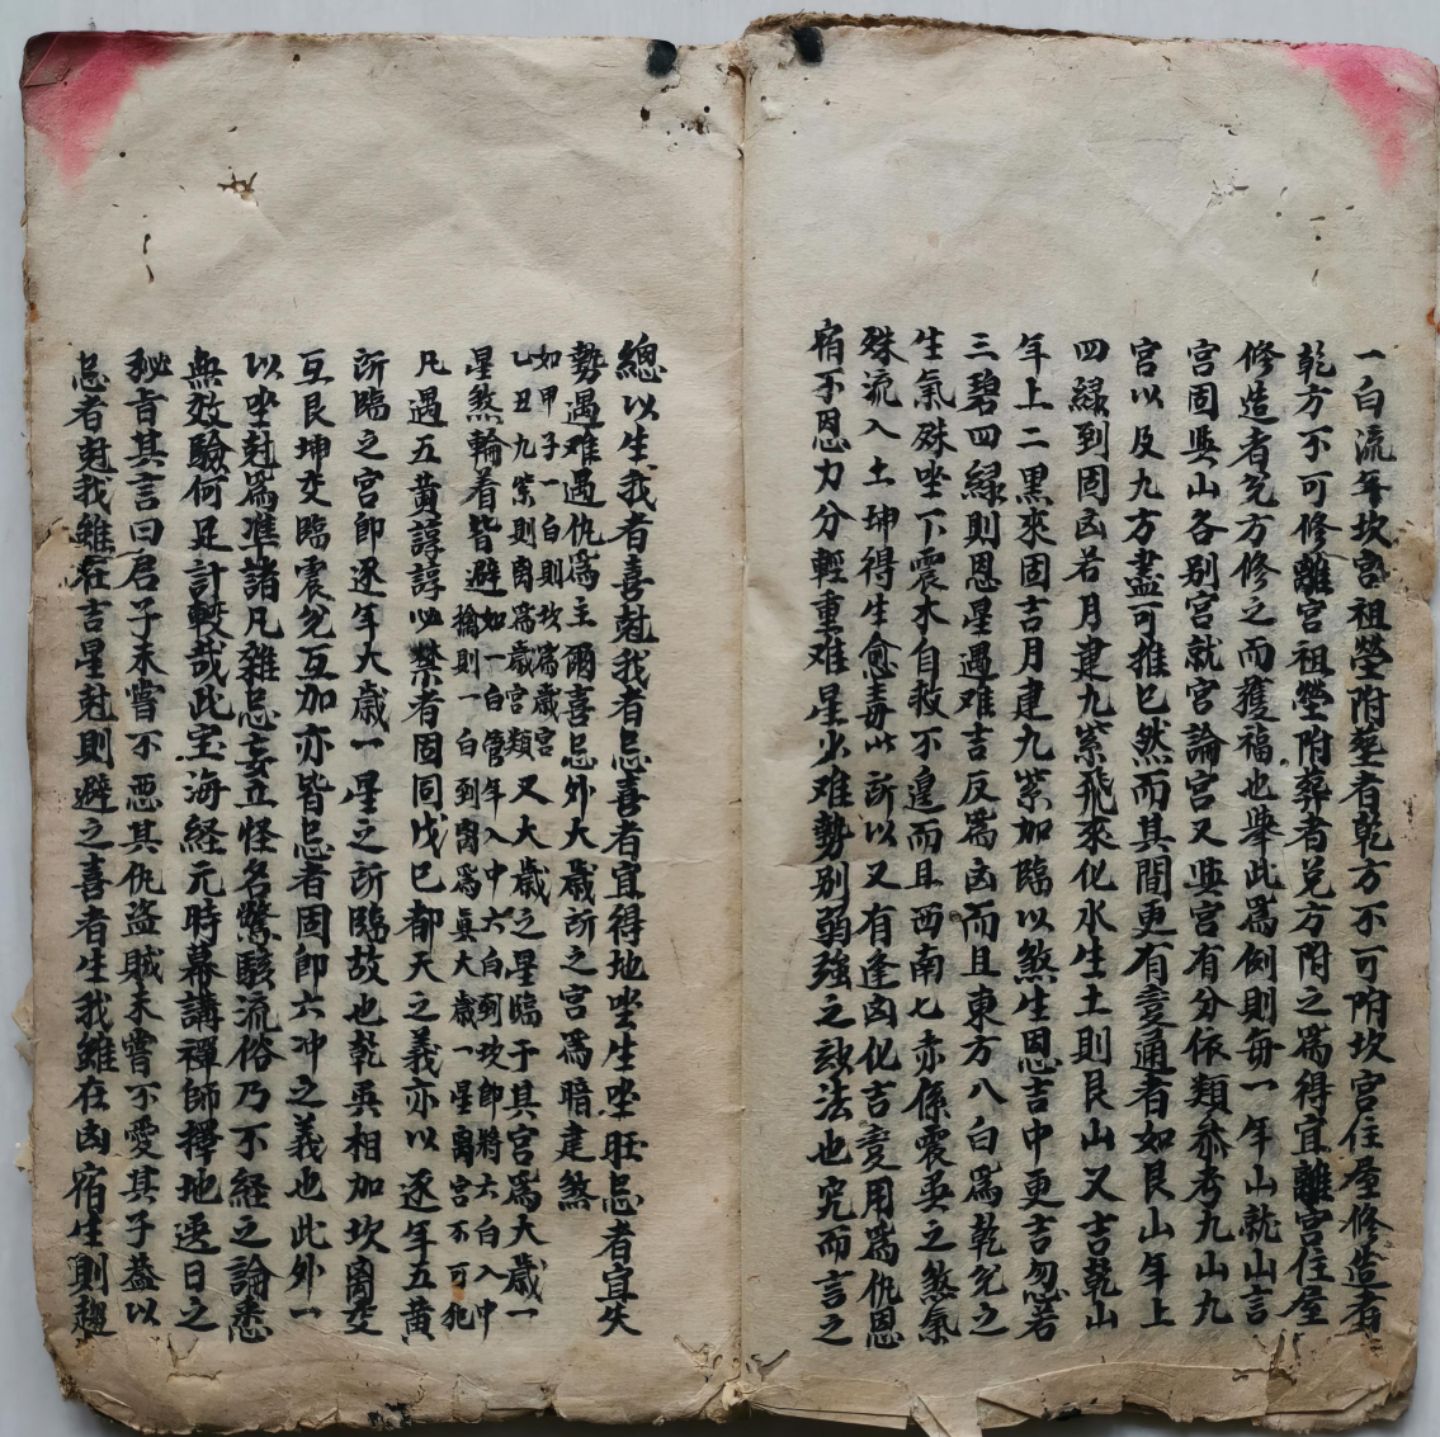 一白流年坎宮祖塋附塟者乾方不可附坎宮住屋修造者
乾方不可修離宮祖塋附葬者兑方附之爲得宜離宮住屋
修造者兑方修之而獲福也舉此爲例則每一年山就山言
宮固與山各别宮就宮論宮又與宮有分依類叅考九山九
宮以及九方盡可推已然而其間更有變通者如艮山年上
四緑到固凶若月建九紫飛來化水生土則艮山又吉乾山
年上二黑來固吉月建九紫加臨以煞生恩吉中更吉忽若
三碧四緑則恩星遇难吉反爲凶而且東方八白爲乾兑之
生氣殊坐下震木自救不遑而且西南七赤係震㢲之煞氣
殊流入土坤得生愈毒此所以又有逢凶化吉变用爲仇恩
宿不恩力分輕重难星少难勢别弱強之訣法也究而言之
總以生我者喜尅我者忌喜者宜得地坐生坐旺忌者宜失
勢遇难遇仇爲主爾喜忌外大歲所之宮爲暗建煞
如甲子一白則坎爲歲宮
乙丑九紫則离爲歲宮類
又大歲之星臨于其宮爲大歲一
星煞輪着皆避
如一白管年入中六白到坎即將六白入中
擒則一白到离爲真大歲一星离宮不可犯
凡遇五黄諄諄必禁者固同戊巳都天之義亦以逐年五黄
所臨之宮即逐年大歲一星之所臨故也乾㢲相加坎离交
互艮坤交臨震兑互加亦皆忌者固即六冲之義也此外一
以坐尅爲準諸凡雜忌妄立怪名驚駭流俗乃不経之論悉
無效驗何足計較哉此宝海経元時幕講禪師擇地选日之
秘旨其言曰君子未嘗不悪其仇盗賊未嘗不愛其子葢以
忌者尅我雖在吉星尅則避之喜者生我雖在凶宿生則趨